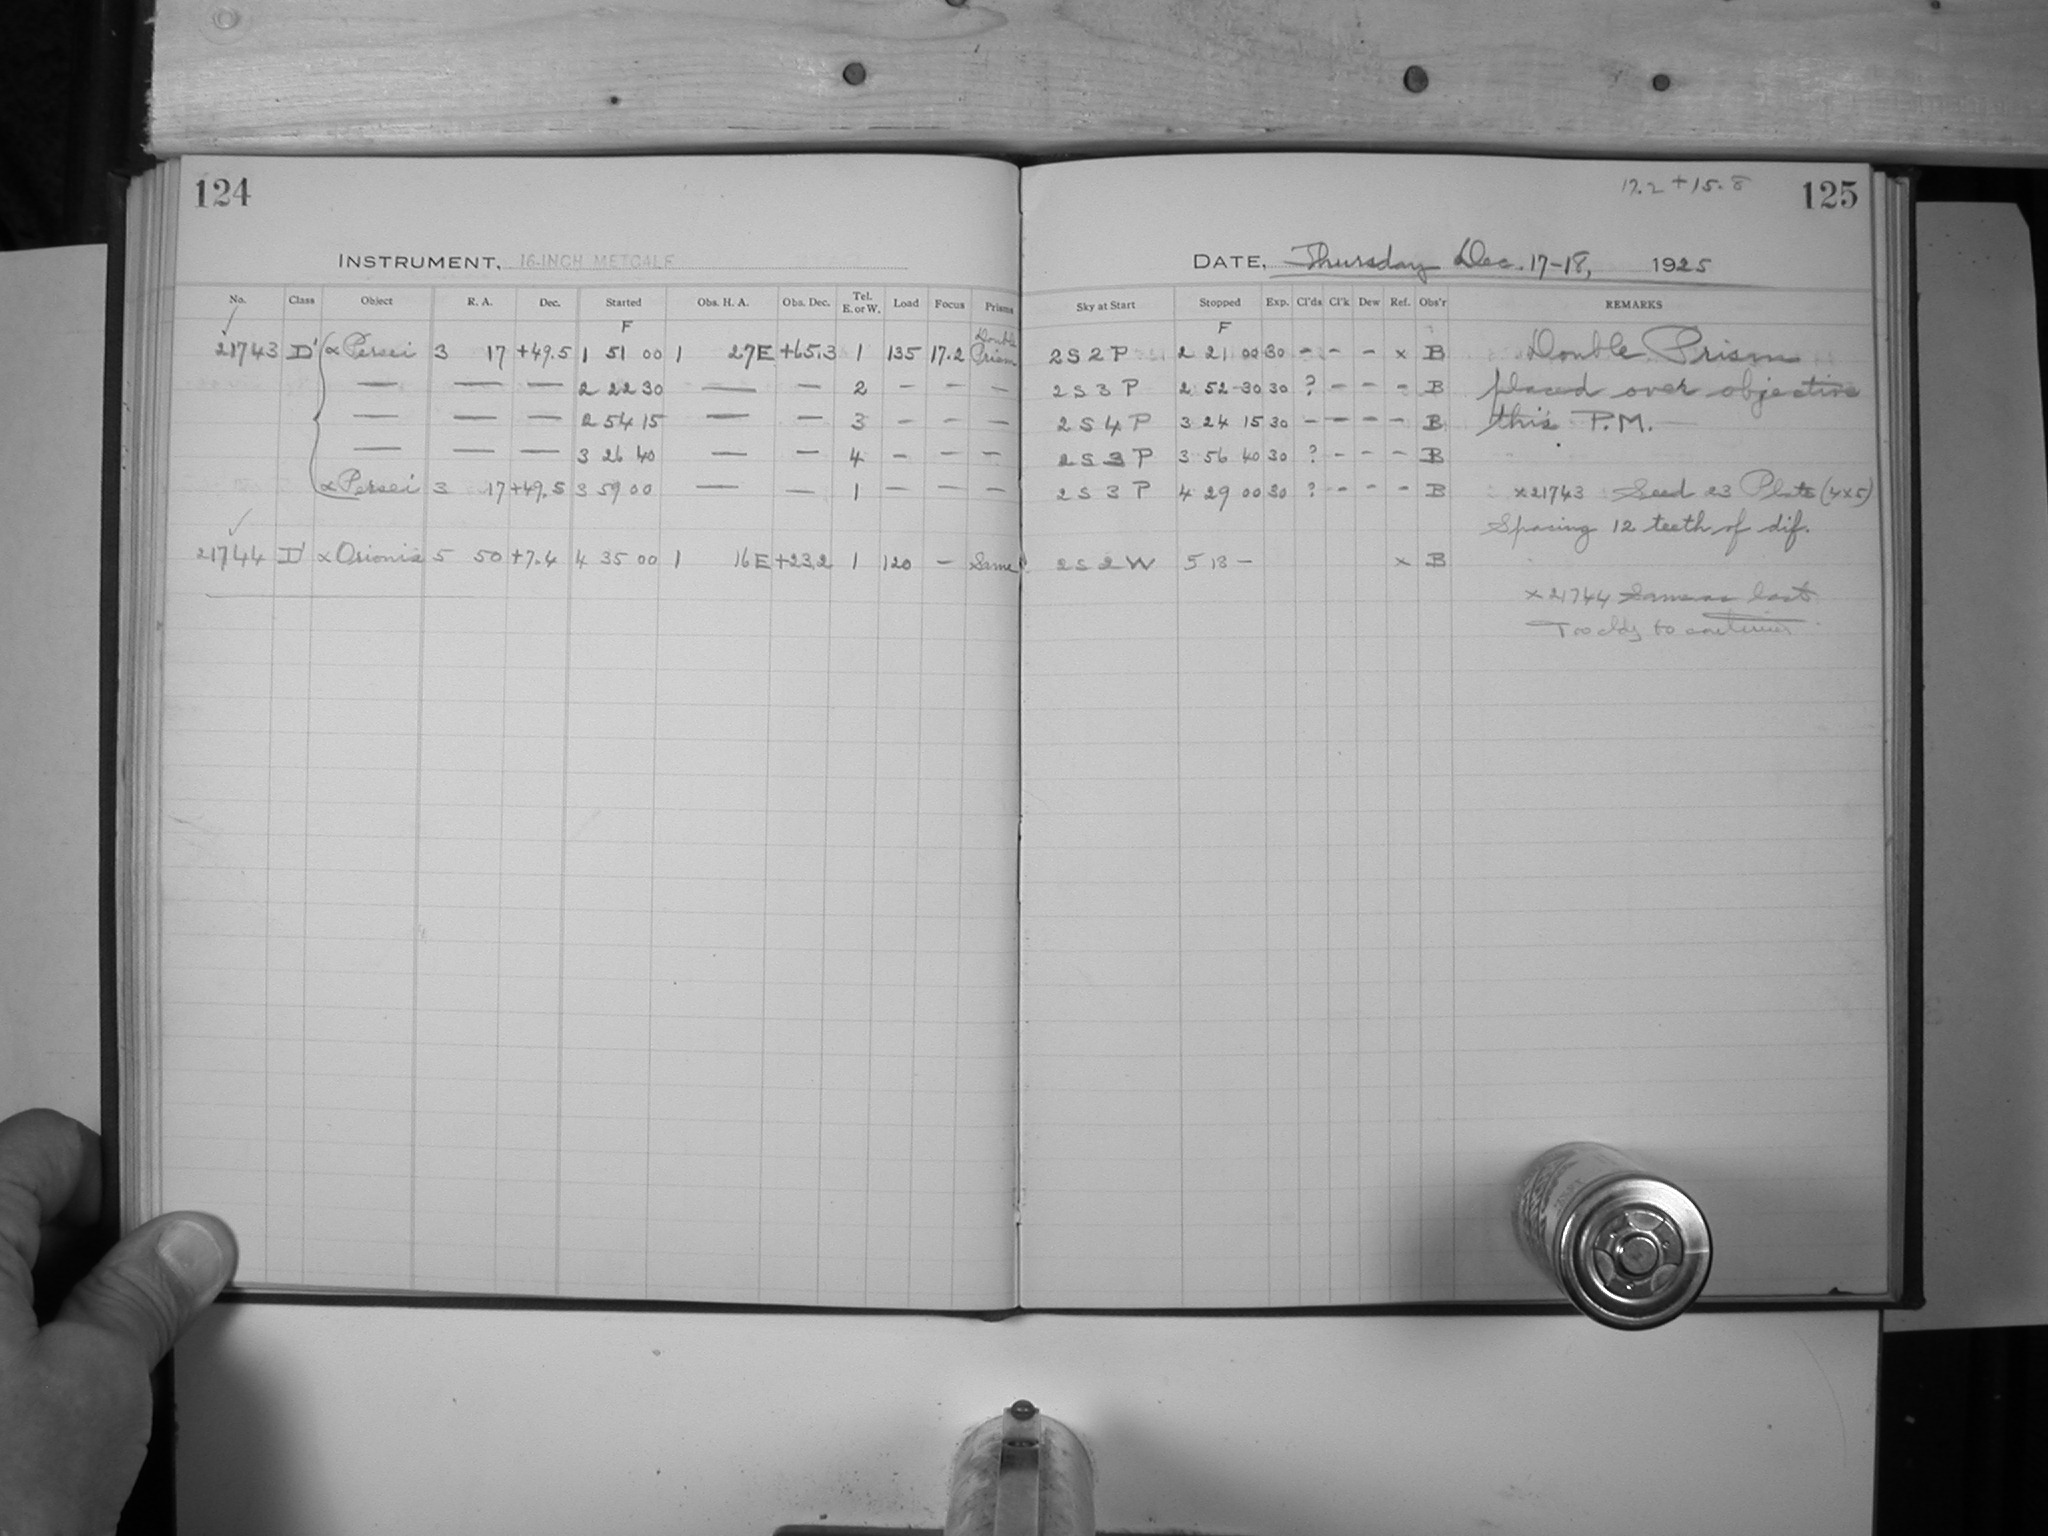 124
INSTRUMENT, 16-INCH METCALF
No. Class Object R. A. Dec. Started Obs. H. A. Obs. Dec. Tel. E. or W. Load Focus Prisms
F
21743 D' α Persei 3 17 +49.5 1 51 00 1 27E +65.3 1 135 17.2 Double Prism
— — — 2 22 30 — — 2 — — —
— — — 2 54 15 — — 3 — — —
— — — 3 26 40 — — 4 — — —
α Persei 3 17 +49.5 3 59 00 — — 1 — — —
21744 D' α Orionis 5 50 +7.4 4 35 00 1 16E +23.2 1 120 — Same
12.2 + 15.8
125
DATE, Thursday Dec. 17-18, 1925
Sky at Start Stopped Exp. Cl'ds Cl'k Dew Ref. Obs'r REMARKS
F
2 S 2 P 2 21 00 30 – – – x B Double Prism
2 S 3 P 2 52 30 30 ? – – – B placed over objective
2 S 4 P 3 24 15 30 – – – – B this P.M.
2 S 3 P 3 56 40 30 ? – – – B
2 S 3 P 4 29 00 30 ? – – – B x21743 Seed 23 Plate (4x5)
Spacing 12 teeth of dif.
2 S 2 W 5 18 — x B
x21744 Same as last
Too cldy to continue